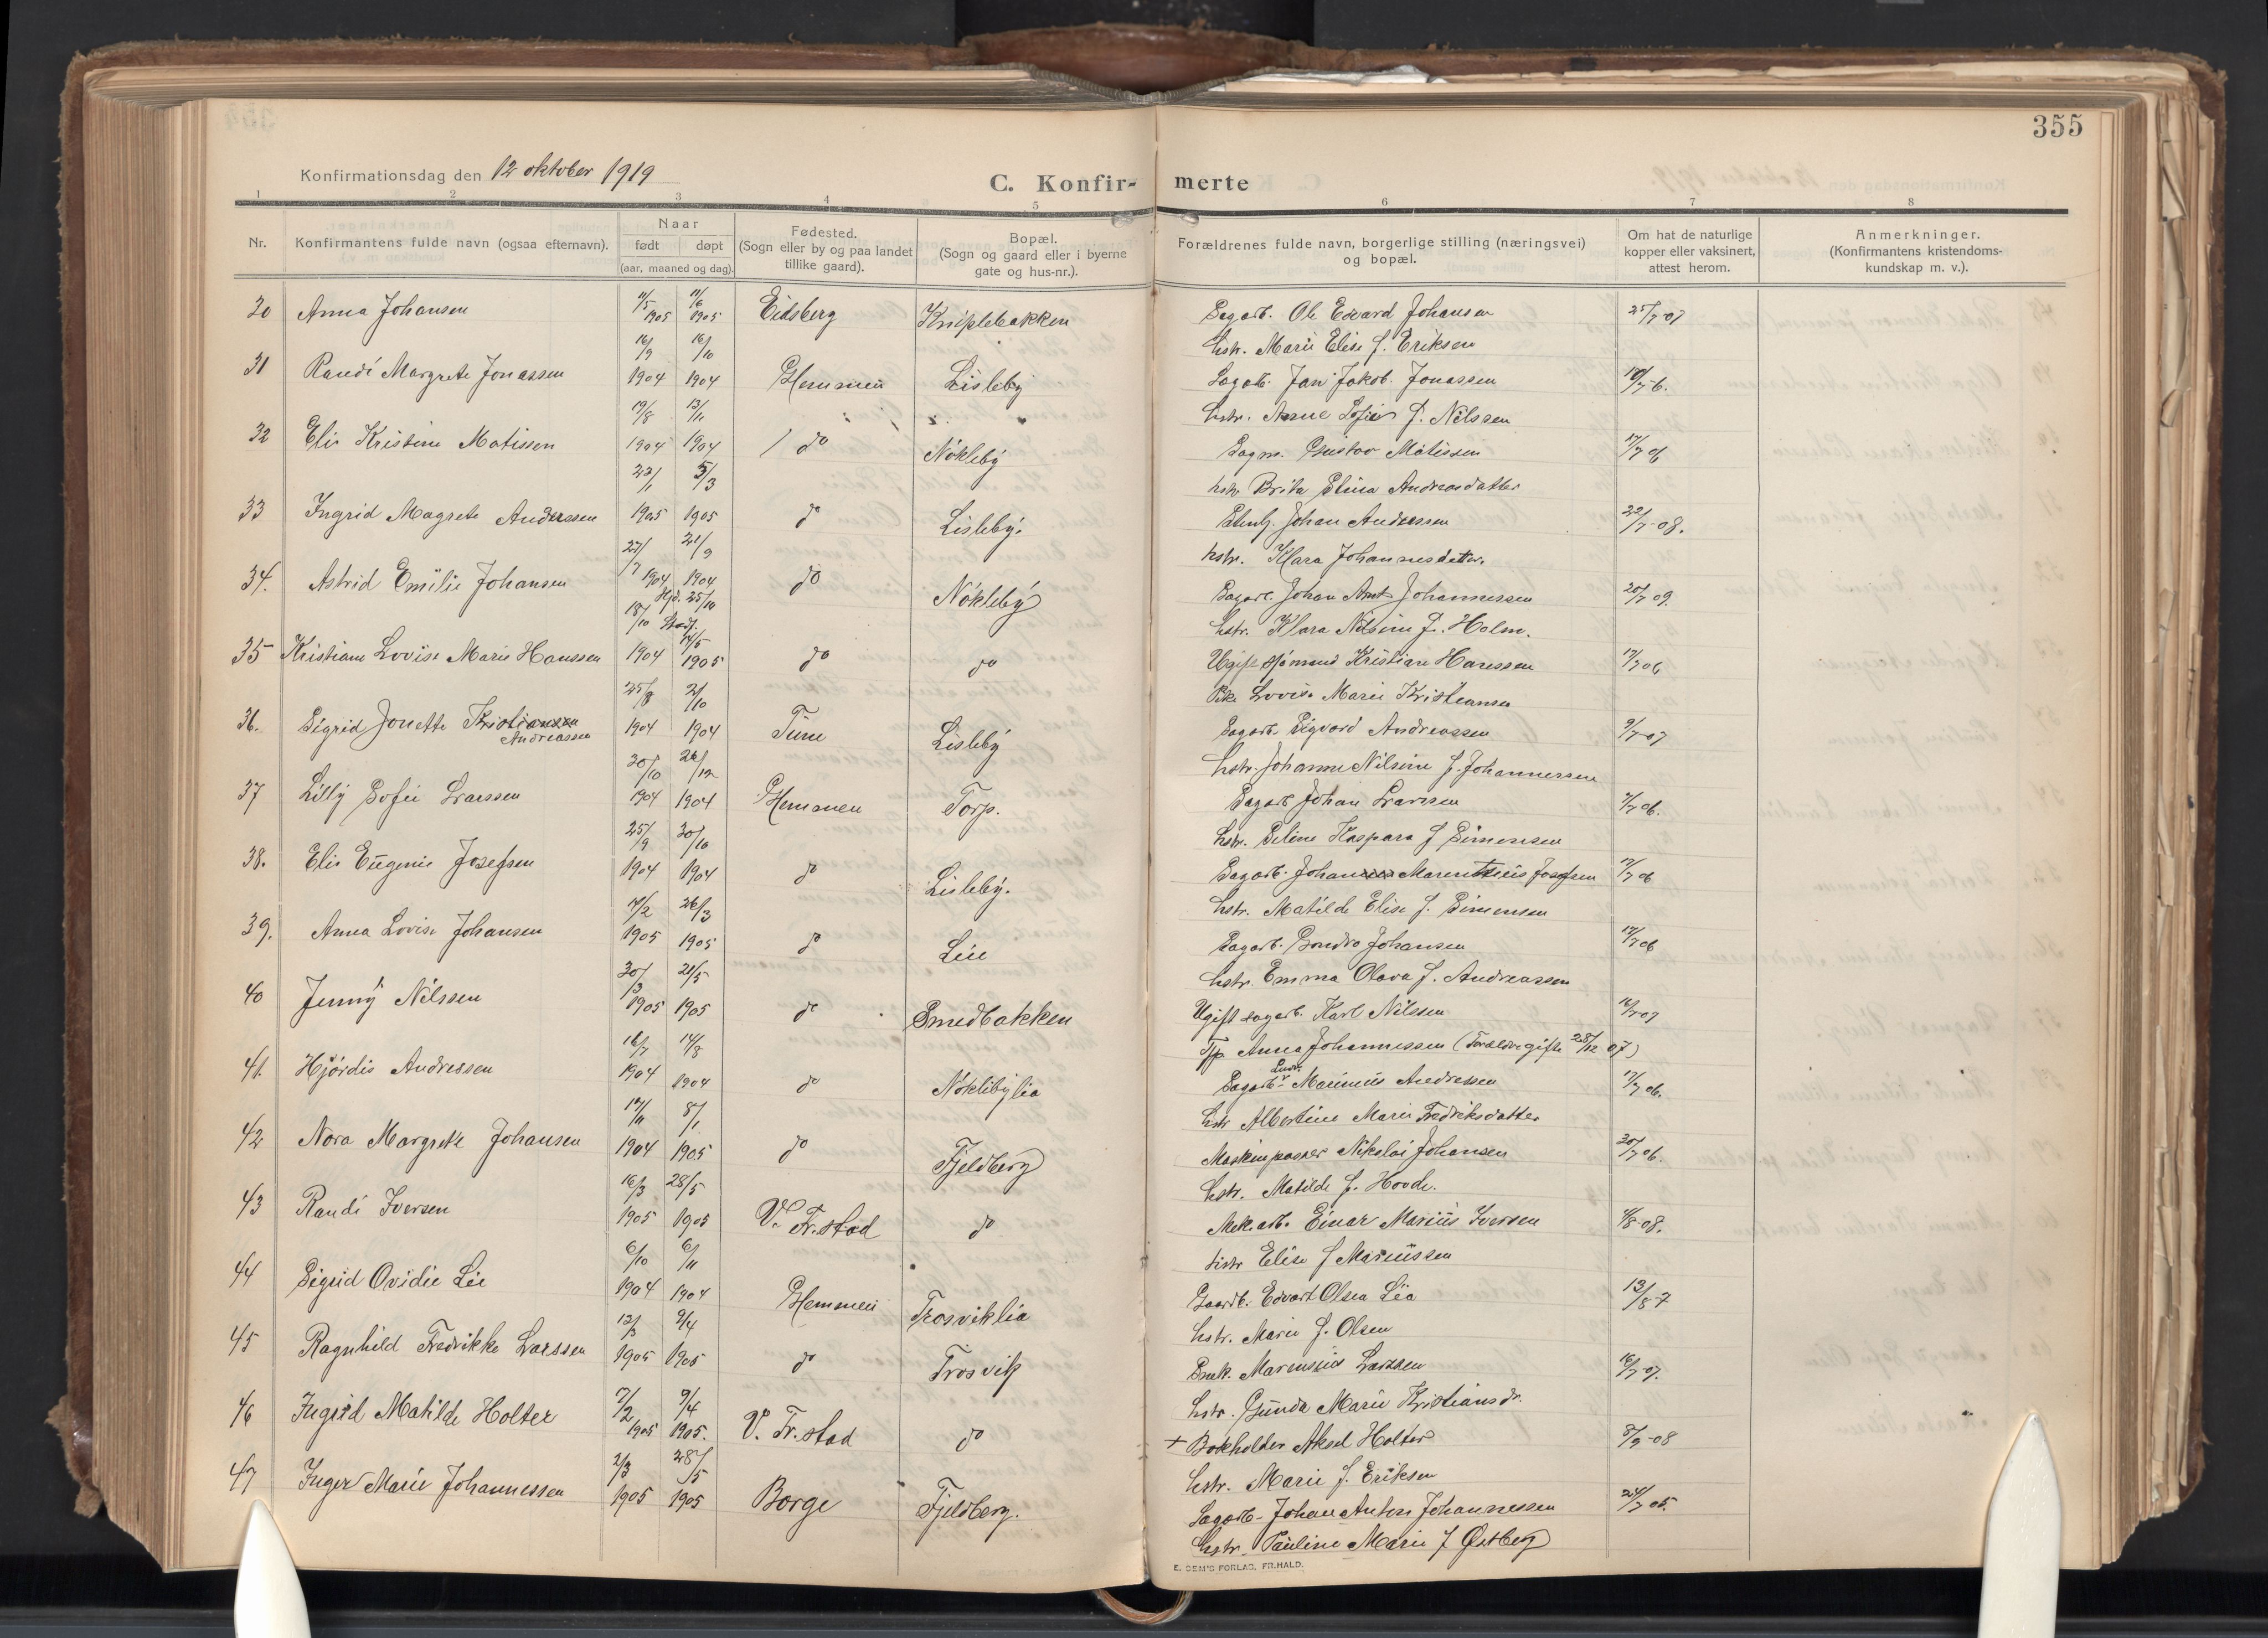 355
Konfirmationsdag den 12 oktober 1919
C. Konfirmerte
1 2 3 4 5 6 7 8
Nr.
Konfirmantens fulde navn (ogsaa efternavn).
Naar
født døpt
(aar, maaned og dag).
Fødested.
(Sogn eller by og paa landet
tillike gaard).
Bopæl.
(Sogn og gaard eller i byerne
gate og hus-nr.).
Forældrenes fulde navn, borgerlige stilling (næringsvei)
og bopæl.
Om hat de naturlige
kopper eller vaksinert,
attest herom.
Anmerkninger.
(Konfirmantens kristendoms-
kundskap m. v.).
30 Anna Johansen 11/5 1905 11/6 1905 Eidsberg Kniplebakken Sagarb. Ole Edvard Johansen 25/7-07
hstr. Marie Elise f. Eriksen
31 Randi Margrete Jonassen 16/9 1904 16/10 1904 Glemmen Lisleby Sagarb. Jan Jakob Jonassen
hstr. Anne Sofie f. Nilssen
32 Elis Kristine Matissen 19/8 1904 13/11 1904 do Nökleby Sagm. Gustav Matissen 17/7 06
hstr Brita Stina Andreasdatter
33 Ingrid Magrete Anderssen 22/1 1905 5/3 1905 do Lisleby. Johan Anderssen 22/7-08.
hstr. Klara Johannesdatter.
34. Astrid Emilie Johansen 27/7 1904 21/9 1904 do Nökleby Sagarb. Johan Arnt Johannessen 20/7 09.
hstr. Klara Nilsine f. Holm.
35 Kristiane Lovise Marie Hanssen 18/10 1904 Hjd. 25/10 Stadf. 14/5 1905 do do Ugift sjömand Kristian Hanssen 17/7 06
Pike Lovise Marie Kristiansen
36. Sigrid Jonette Kristiansen Andreassen 25/8 1904 2/10 1904 Tune Lisleby Sagarb. Sigvard Andreassen 9/7-07
hstr. Johanne Nilsine f. Johannessen
37 Lilly Sofie Larssen 30/10 1904 26/12 1904 Glemmen Torp. Sagarb Johan Larssen 7/7 06.
hstr. Seline Kaspara f Simensen
38. Elis Eugenie Josefsen 25/9 1904 30/10 1904 do Lisleby. Sagarb. Johan Marentius Josefsen 17/7 06
hstr. Matilde Elise f. Simensen
39. Anna Lovise Johansen 14/2 1905 26/3 1905 do Lie Sagarb. Sondre Johansen 17/7 06
hstr. Emma Olava f. Andreassen
40 Jenny Nilssen 30/3 1905 21/5 1905 do Smedbakken Ugift sagarb. Karl Nilssen 16/7 07
Tjp. Anna Johannessen (Forældre gifte 28/12 07)
41. Hjördis Andressen 16/7 1904 14/8 1904 do Nöklebylia Sagarb. Marinius Andressen 17/7 06.
hstr Albertine Marie Fredriksdatter
42 Nora Margrete Johansen 17/11 1904 8/1 1905 do Fjeldberg Maskinpasser Nikolai Johansen 30/7 06.
hstr. Matilde f. Hovde.
43 Randi Iversen 16/3 1905 28/5 1905 V. Fr.stad do Mek.arb. Einar Marius Iversen 4/8-08.
hstr Elise f Mariussen
44 Sigrid Ovidie Lie 6/10 1904 6/11 1904 Glemmen Trosviklia Gaardb. Edvart Olsen Lia 13/8-7
hstr. Marie f. Olsen
45 Ragnhild Fredrikke Larssen 12/3 1905 9/4 1905 do Trosvik Snek. Marensius Larssen 16/7-07.
hstr. Gunda Marie Kristiansdr.
46 Ingrid Matilde Holter 7/2 1905 9/4 1905. V. Fr.stad do + Bokholder Aksel Holter 8/9-08
hstr. Marie f. Eriksen
47 Inger Marie Johannessen 2/3 1905 28/5 1905 Borge Fjeldberg. Sagarb. Johan Anton Johannessen 24/7 05.
hstr. Pauline Marie f Østberg
E. SEM'S FORLAG, FR.HALD.